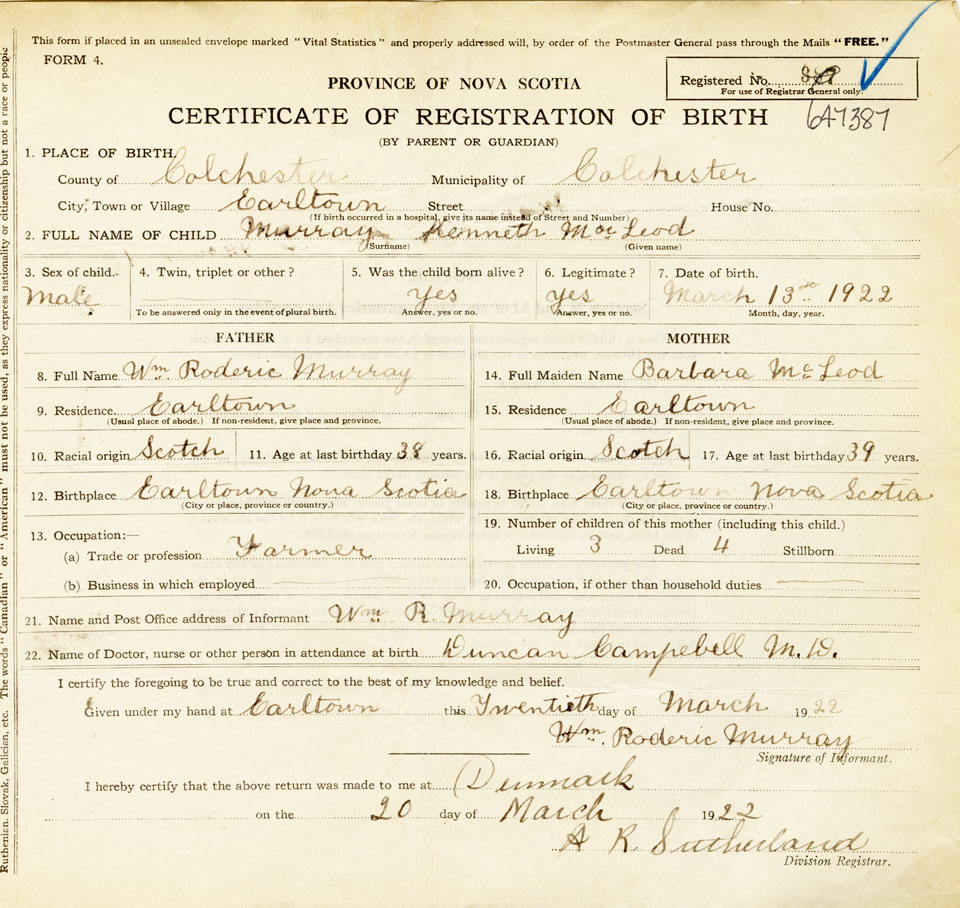 This form if placed in an unsealed envelope marked "Vital Statistics" and properly addressed will, by order of the Postmaster General pass through the Mails "FREE."
FORM 4.
Registered No.
For use of Registrar General only.
647387
PROVINCE OF NOVA SCOTIA
CERTIFICATE OF REGISTRATION OF BIRTH
(BY PARENT OR GUARDIAN)
1. PLACE OF BIRTH.
County of Colchester Municipality of Colchester
City, Town or Village Earltown Street House No.
(If birth occurred in a hospital, give its name instead of Street and Number)
2. FULL NAME OF CHILD Murray Kenneth MacLeod
(Surname) (Given name)
3. Sex of child. 4. Twin, triplet or other? 5. Was the child born alive? 6. Legitimate? 7. Date of birth.
Male yes yes March 13 1922
To be answered only in the event of plural birth. Answer, yes or no. Answer, yes or no. Month, day, year.
FATHER MOTHER
8. Full Name Wm Roderic Murray 14. Full Maiden Name Barbara McLeod
9. Residence Earltown 15. Residence Earltown
(Usual place of abode.) If non-resident, give place and province. (Usual place of abode.) If non-resident, give place and province.
10. Racial origin Scotch 11. Age at last birthday 38 years. 16. Racial origin Scotch 17. Age at last birthday 39 years.
12. Birthplace Earltown Nova Scotia 18. Birthplace Earltown Nova Scotia
(City or place, province or country.) (City or place, province or country.)
13. Occupation:— 19. Number of children of this mother (including this child.)
(a) Trade or profession Farmer Living 3 Dead 4 Stillborn
(b) Business in which employed 20. Occupation, if other than household duties
21. Name and Post Office address of Informant Wm R. Murray
22. Name of Doctor, nurse or other person in attendance at birth Duncan Campebell M.D.
I certify the foregoing to be true and correct to the best of my knowledge and belief.
Given under my hand at Earltown this Twentieth day of March 1922
Wm Roderic Murray
Signature of Informant.
I hereby certify that the above return was made to me at Denmark
on the 20 day of March 1922
A R Sutherland
Division Registrar.
Ruthenian, Slovak, Galician, etc. The words "Canadian" or "American" must not be used, as they express nationality or citizenship but not a race or people